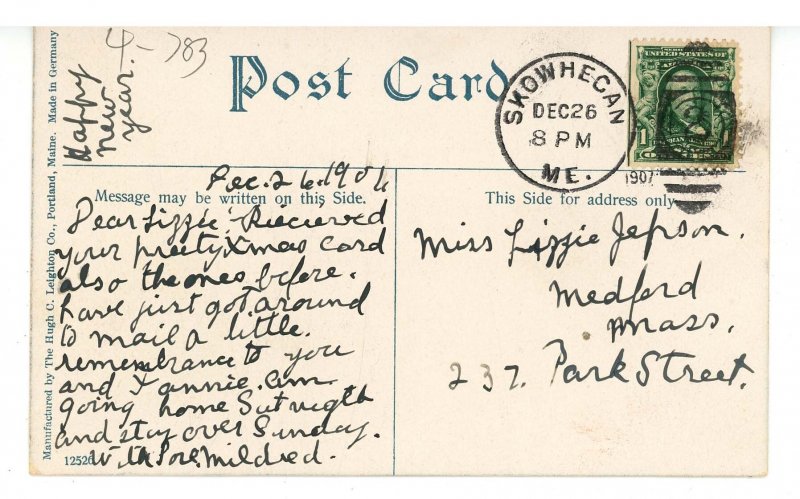 4-783
Happy
new
year.
Post Card
SKOWHEGAN
DEC 26
8 PM
ME.
1907
UNITED STATES OF
1
Dec. 26. 190
Message may be written on this Side.
Dear Lizzie: Recieved
your pretty Xmas card
also the ones before.
have just got around
to mail a little.
remembrance to you
and Annie. am
going home Sat night
and stay over Sunday.
With love. Mildred.
12526
This Side for address only
Miss Lizzie Jepson.
Medford
Mass.
237. Park Street.
Manufactured by The Hugh C. Leighton Co., Portland, Maine. Made in Germany